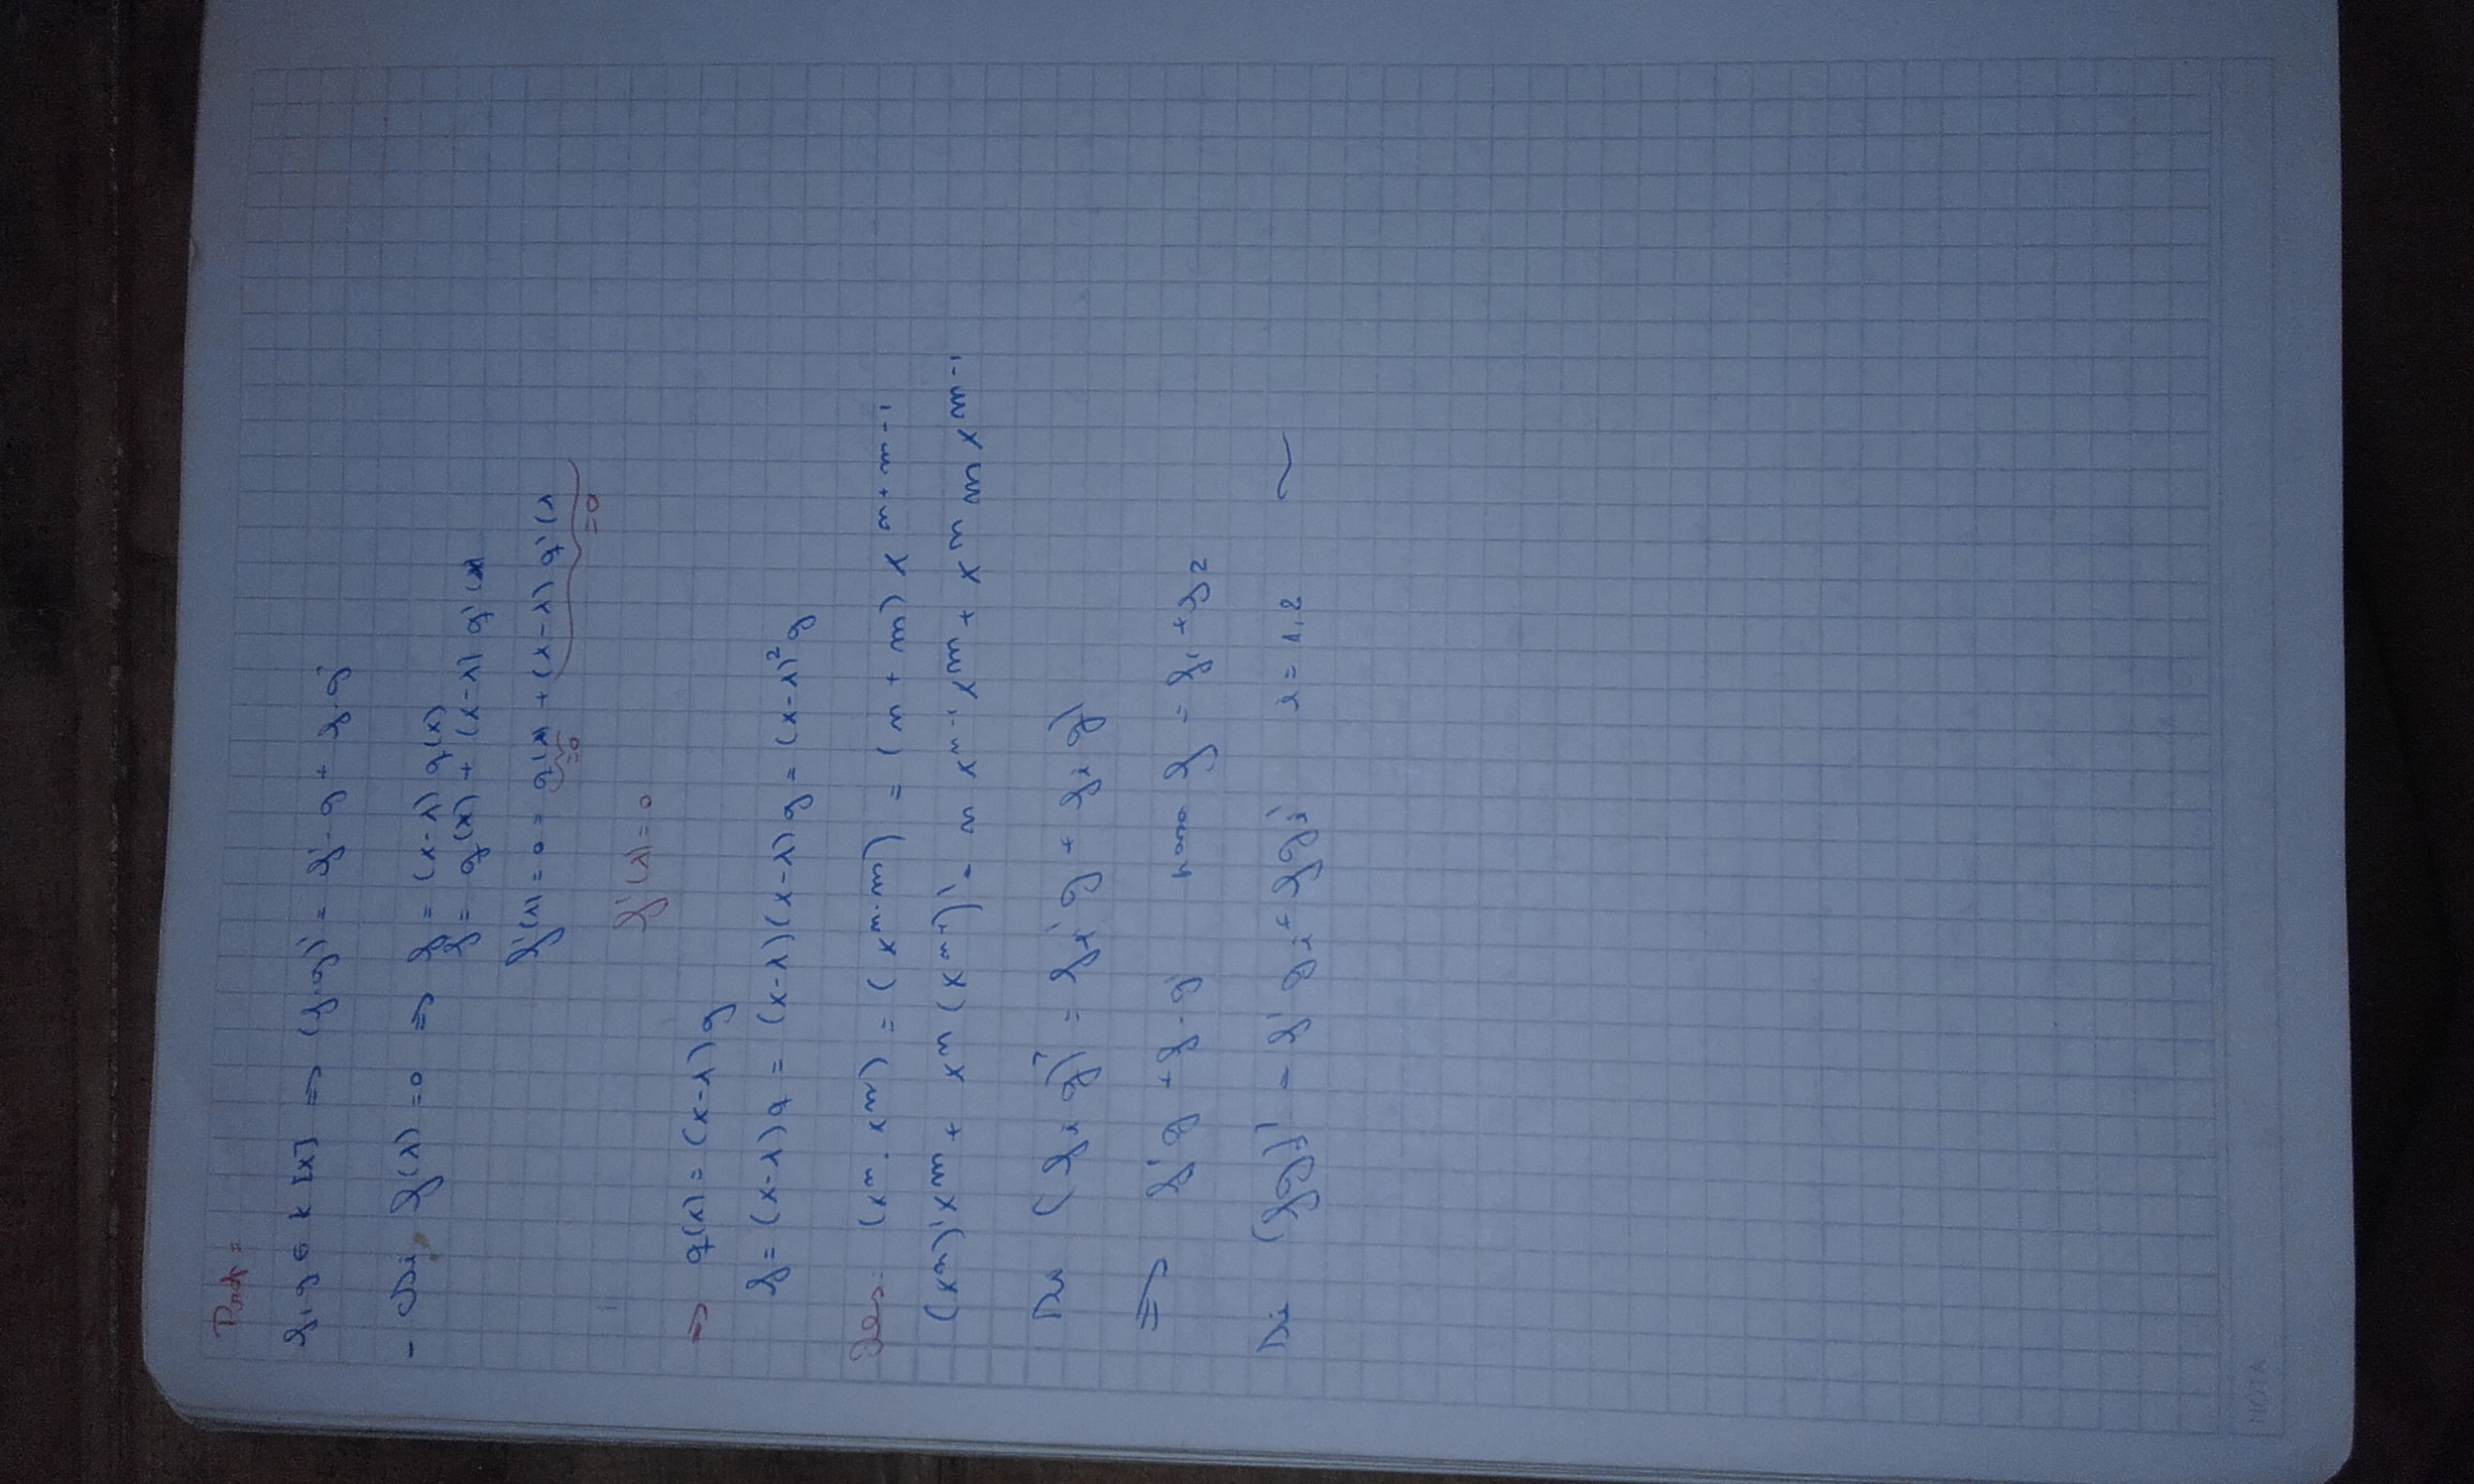 Prop =
f, g ∈ K [x] => (f.g)' = f' . g + f . g'
- Si f(λ) = 0 => f = (x-λ) q(x)
f = q(x) + (x-λ) q'(x)
f'(λ) = 0 = q(λ) + (λ-λ) q'(λ
=0 =0
f'(λ) = 0
=> q(x) = (x-λ) g
f = (x-λ) q = (x-λ)(x-λ) g = (x-λ)² g
Des: (xⁿ . xᵐ) = (xⁿ·ᵐ) = (n + m) x ⁿ⁺ᵐ⁻¹
(xⁿ)' xᵐ + xⁿ ( )' = n xⁿ⁻¹ xᵐ + xⁿ m xᵐ⁻¹
Si (fᵢ g)' = fᵢ' g + fᵢ g'
=> f' g + f . g' para f = f₁ + f₂
Si (f gᵢ)' = f' gᵢ + f gᵢ' i = 1, 2 ~
NOTA